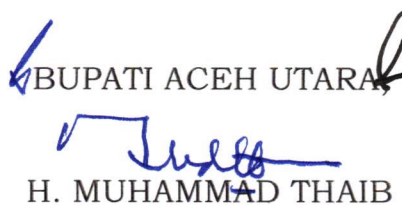 BUPATI ACEH UTARA,
H. MUHAMMAD THAIB